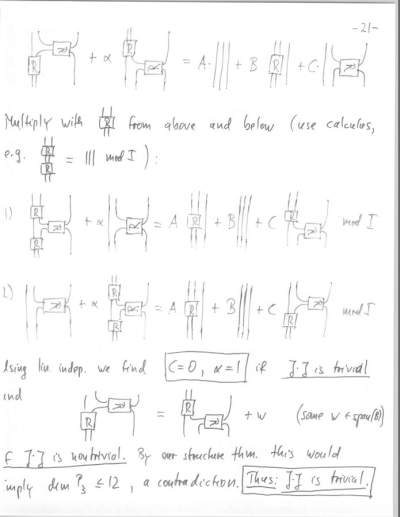 -21-
+ α = A· |||| + B + C·
Multiply with R from above and below (use calculus,
e.g. R R = ||| mod I ) :
1) + α = A + B ||| + C mod I
2) + α = A + B ||| + C mod I
Using lin. indep. we find C=0, α=1 if J·J is trivial
and
R = R + w (some w ∈ span(B))
if J·J is nontrivial. By our structure thm. this would
imply dim P₃ ≤ 12, a contradiction. Thus: J·J is trivial.